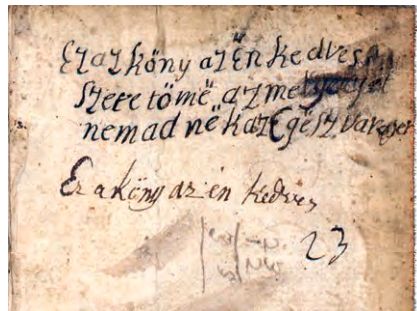 Ez az köny az ën kedves
szere tömë, az mellyet
nem ad në kaz Egész var
Ez a köny az én kedves
23